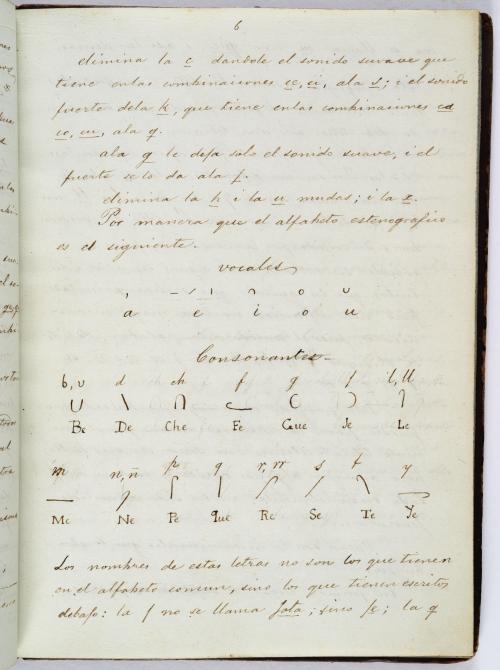 6
elimina la c dandole el sonido suave que
tiene enlas combinaciones ce, ci, ala s; i el sonido
fuerte dela k, que tiene enlas combinaciones ca
co, cu, ala q.
ala g le deja solo el sonido suave, i el
fuerte se lo da ala j.
elimina la h i la u mudas; i la x.
Por manera que el alfabeto estenografico
es el siguiente.
vocales
a e i o u
Consonantes
b, v d ch f g j l, ll
Be De Che Fe Gue Je Le
m n, ñ p q r, rr s t y
Me Ne Pe Que Re Se Te Ye
Los nombres de estas letras no son los que tienen
en el alfabeto comun, sino los que tienen escritos
debajo: la j no se llama jota; sino je; la q